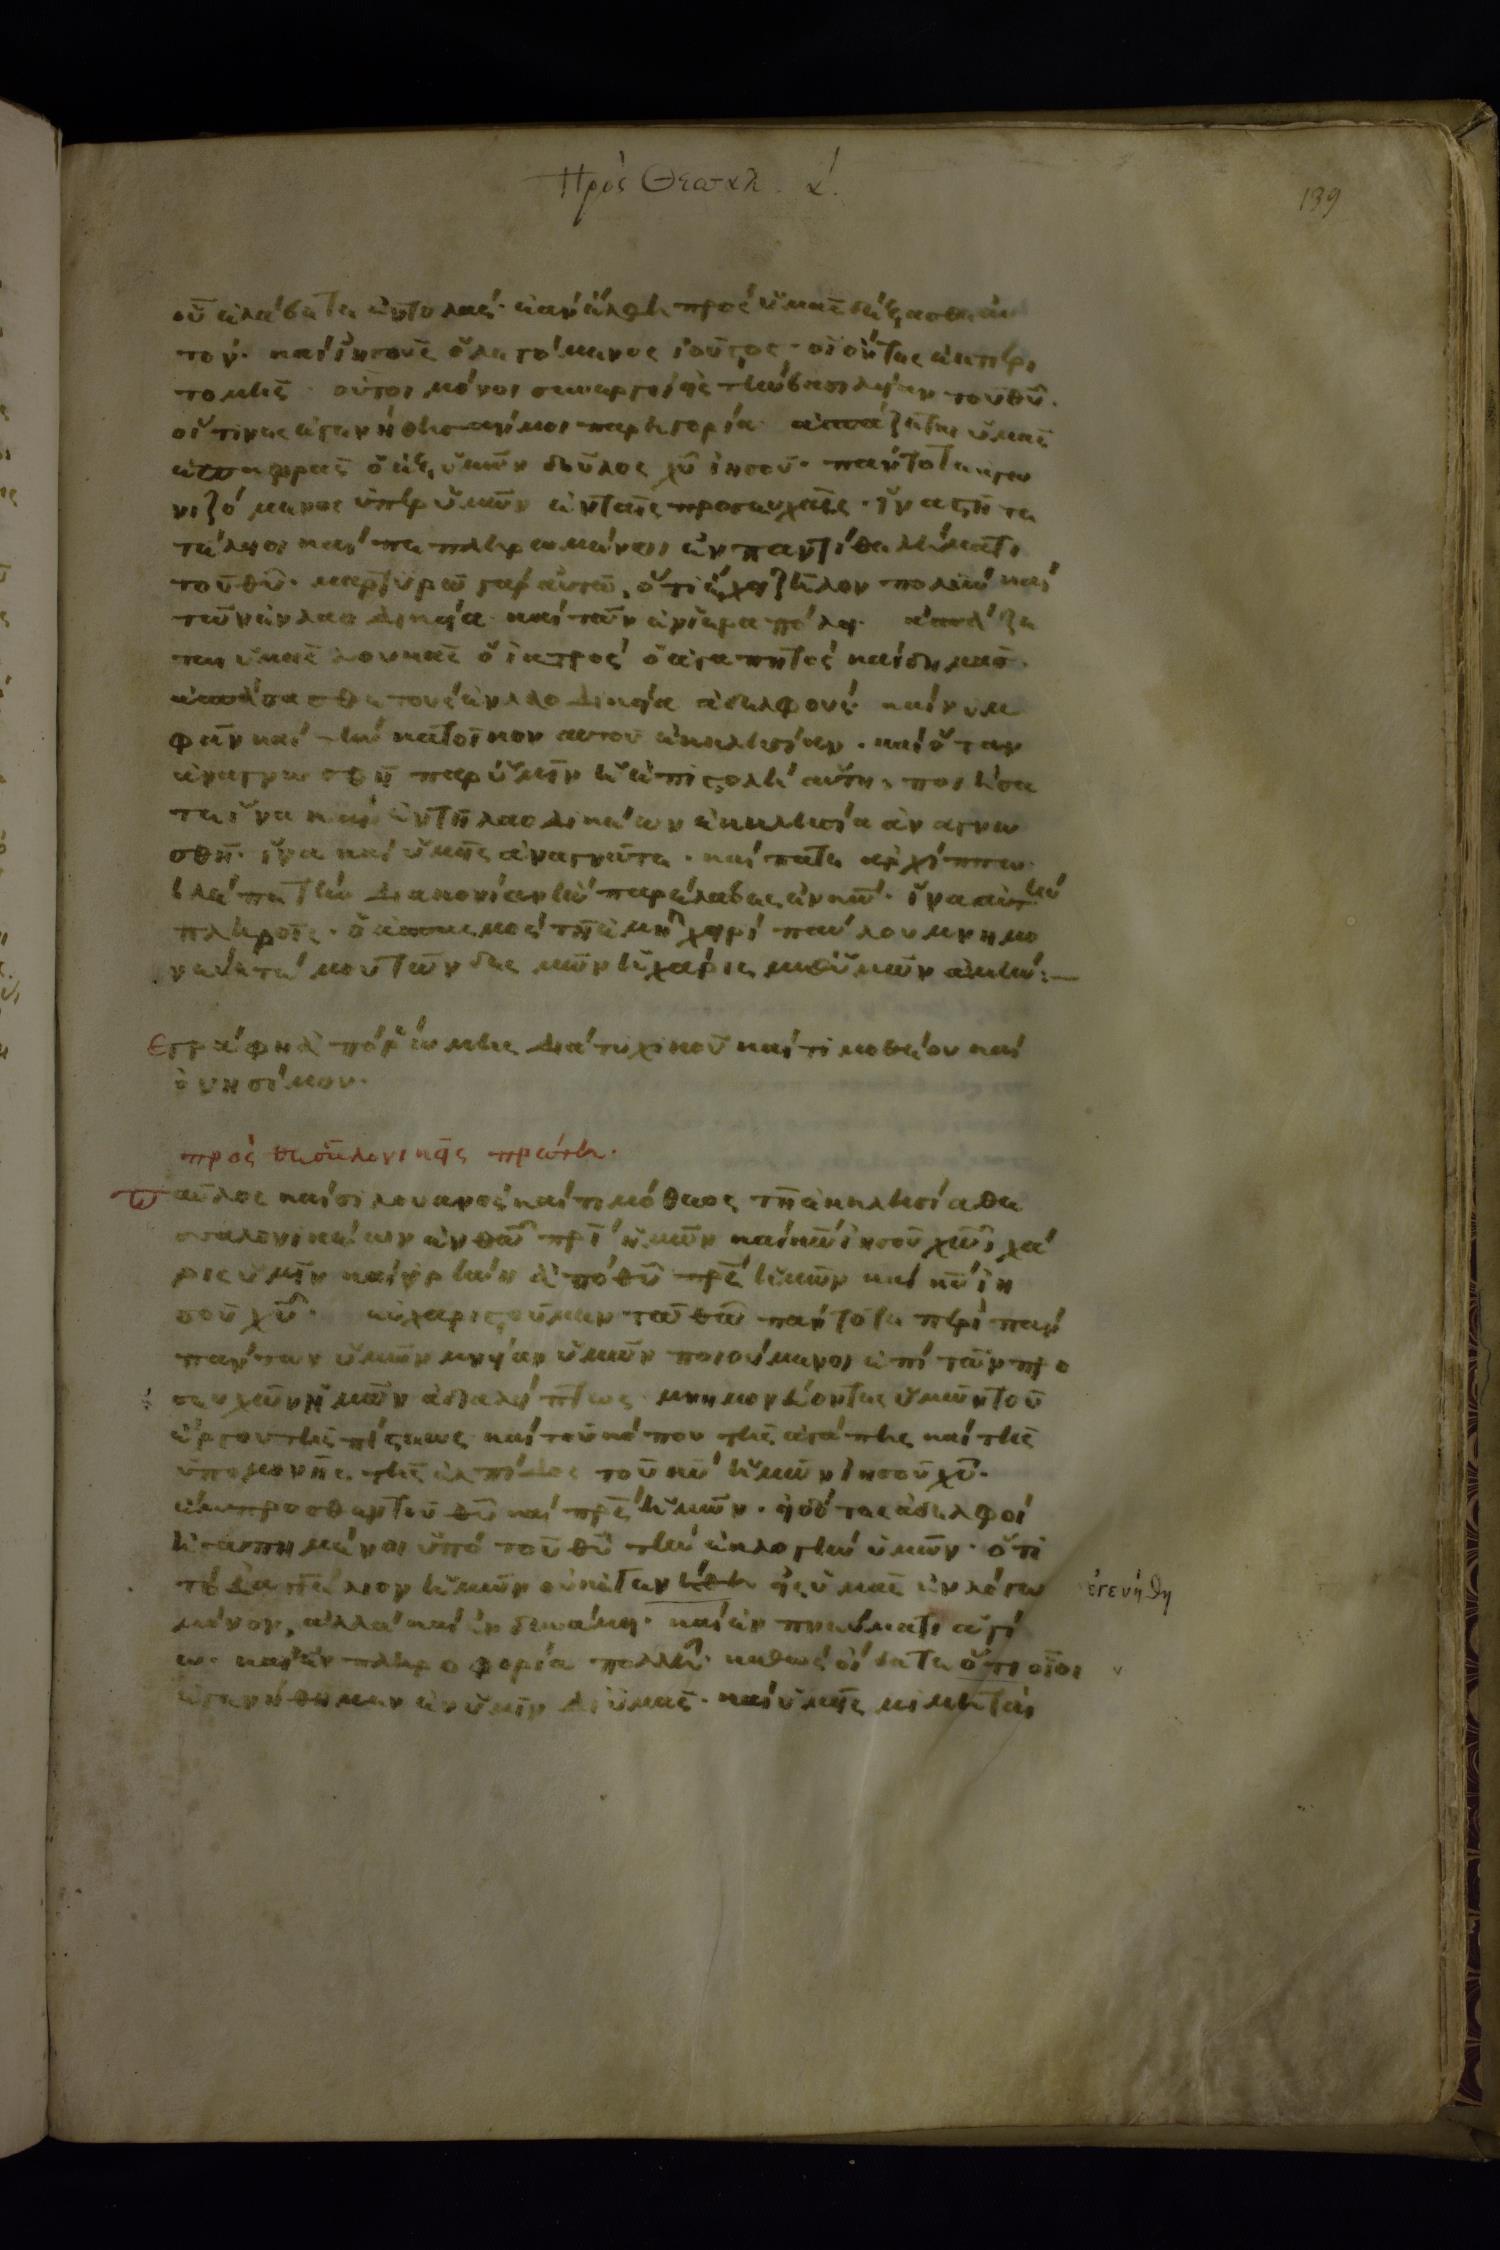 Πρὸς Θεσσαλ. α΄.
139
οὗ ἐλάβετε ἐντολάς· ἐὰν ἔλθη πρὸς ὑμᾶς δέξασθε αὐ
τόν· καὶ ἰησοῦς ὁ λεγόμενος ἰοῦστος· οἱ ὄντες ἐκ περι
τομῆς· οὗτοι μόνοι συνεργοὶ εἰς τὴν βασιλείαν τοῦ θῦ·
οἵτινες ἐγενήθησάν μοι παρηγορία· ἀσπάζεται ὑμᾶς
ἐπαφρᾶς ὁ ἐξ ὑμῶν δοῦλος χῦ ἰησοῦ· πάντοτε ἀγω
νιζόμενος ὑπὲρ ὑμῶν ἐν ταῖς προσευχαῖς· ἵνα στῆτε
τέλειοι καὶ πεπληρωμένοι ἐν παντὶ θελήματι
τοῦ θῦ· μαρτυρῶ γὰρ αὐτῶ, ὅτι ἔχει ζῆλον πολὺν καὶ
τῶν ἐν λαοδικεία καὶ τῶν ἐν ἱεραπόλει· ἀσπάζε
ται ὑμᾶς λουκᾶς ὁ ἰατρὸς ὁ ἀγαπητὸς καὶ δημᾶς·
ἀσπάσασθε τοὺς ἐν λαοδικεία ἀδελφούς· καὶ νυμ
φᾶν καὶ τὴν κατοῖκον αυτου ἐκκλησίαν· καὶ ὅταν
ἀναγνωσθῆ παρ' ὑμῖν ἡ ἐπιστολὴ αὕτη, ποιήσα
τε ἵνα καὶ ἐν τῆ λαοδικέων ἐκκλησία ἀναγνω
σθῆ· ἵνα καὶ ὑμεῖς ἀναγνῶτε· καὶ πατε ἀρχίππω·
βλέπε τὴν διακονίαν ἣν παρέλαβες ἐν κῶ· ἵνα αὐτὴν
πληροῖς· ὁ ἀσπασμὸς τῆ ἐμῆ χειρὶ παύλου μνημο
νεύετέ μου τῶν δεσμῶν ἡ χάρις μεθ' ὑμῶν ἀμήν:—
Εγράφη ἀπὸ ῥώμης διὰ τυχικοῦ καὶ τιμοθέου καὶ
ὀνησίμου·
πρὸς θεσσαλονικεῖς πρώτη·
Παῦλος καὶ σιλουανὸς καὶ τιμόθεος τῆ ἐκκλησία θε
σσαλονικέων ἐν θῶ πρι ἡμῶν καὶ κῶ ἰησοῦ χῶ, χά
ρις ὑμῖν καὶ εἰρήνη ἀπὸ θῦ πρς ἡμῶν καὶ κῦ ἰη
σοῦ χῦ· εὐχαριστοῦμεν τῶ θῶ πάντοτε περὶ παν
πάντων ὑμῶν μνείαν ὑμῶν ποιούμενοι ἐπὶ τῶν προ
σευχῶν ἡμῶν ἀδιαλείπτως· μνημονεύοντες ὑμῶν τοῦ
ἔργου τῆς πίστεως καὶ τοῦ κόπου τῆς ἀγάπης καὶ τῆς
ὑπομονῆς τῆς ἐλπίδος τοῦ κῦ ἡμῶν ἰησοῦ χῦ·
ἔμπροσθεν τοῦ θῦ καὶ πρς ἡμῶν· εἰδότες ἀδελφοὶ
ἠγαπημένοι ὑπὸ τοῦ θῦ τὴν ἐκλογὴν ὑμῶν· ὅτι
τὸ εὐαγγέλιον ἡμῶν οὐκ ἐγενήθη εἰς ὑμᾶς ἐν λόγω
ἐγενήθη
μόνον, ἀλλὰ καὶ ἐν δυνάμει· καὶ ἐν πνεύματι ἁγί
ω· καὶ ἐν πληροφορία πολλῆ· καθὼς οἴδατε ὅτι οἷοι
ἐγενήθημεν ἐν ὑμῖν δι' ὑμᾶς· καὶ ὑμεῖς μιμηταὶ